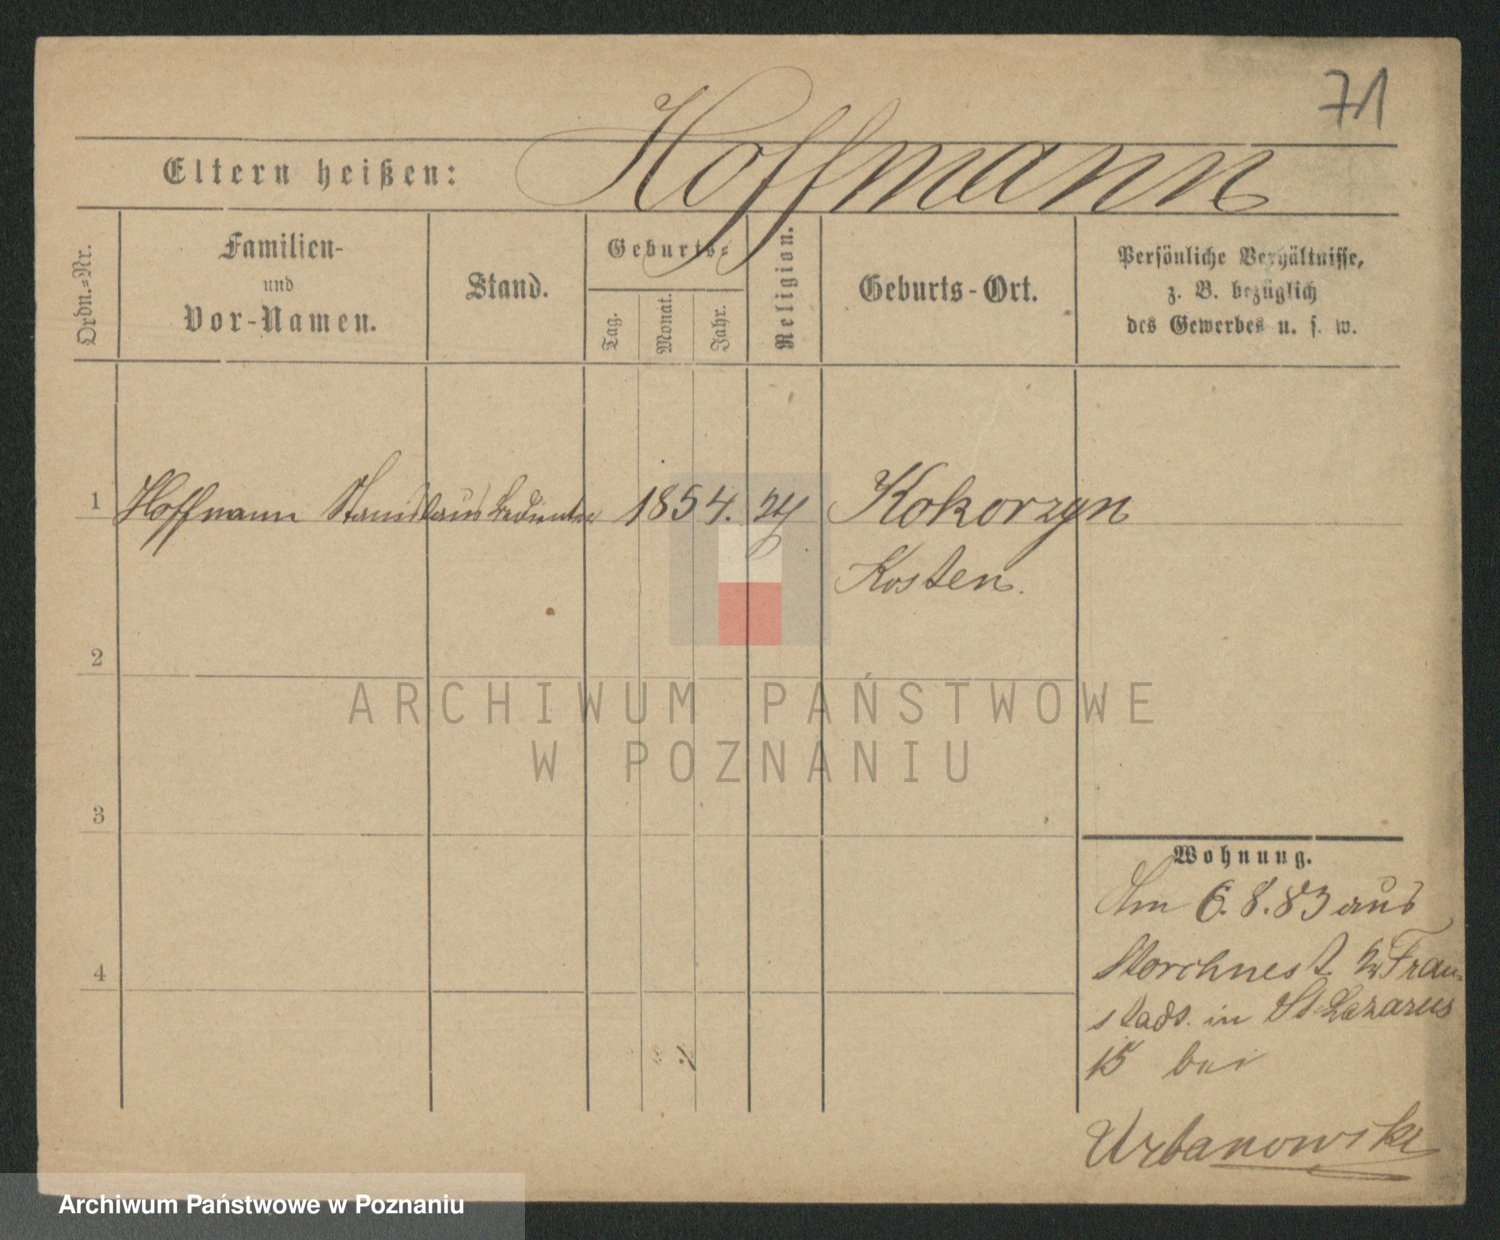 71
Hoffmann
Eltern heißen:
Ordn.-Nr.
Familien-
und
Vor-Namen.
Stand.
Geburts-
Tag.
Monat.
Jahr.
Religion.
Geburts-Ort.
Persönliche Verhältnisse,
z. B. bezüglich
des Gewerbes u. s. w.
1 Hoffmann Stanislaus 1854. Kokorzyn
Kosten.
2
3
4
Wohnung.
Am 6.8.83 aus
Storchnest Frau-
stadt. in St Lazarus
15 bei
Urbanowski
ARCHIWUM PAŃSTWOWE
W POZNANIU
Archiwum Państwowe w Poznaniu